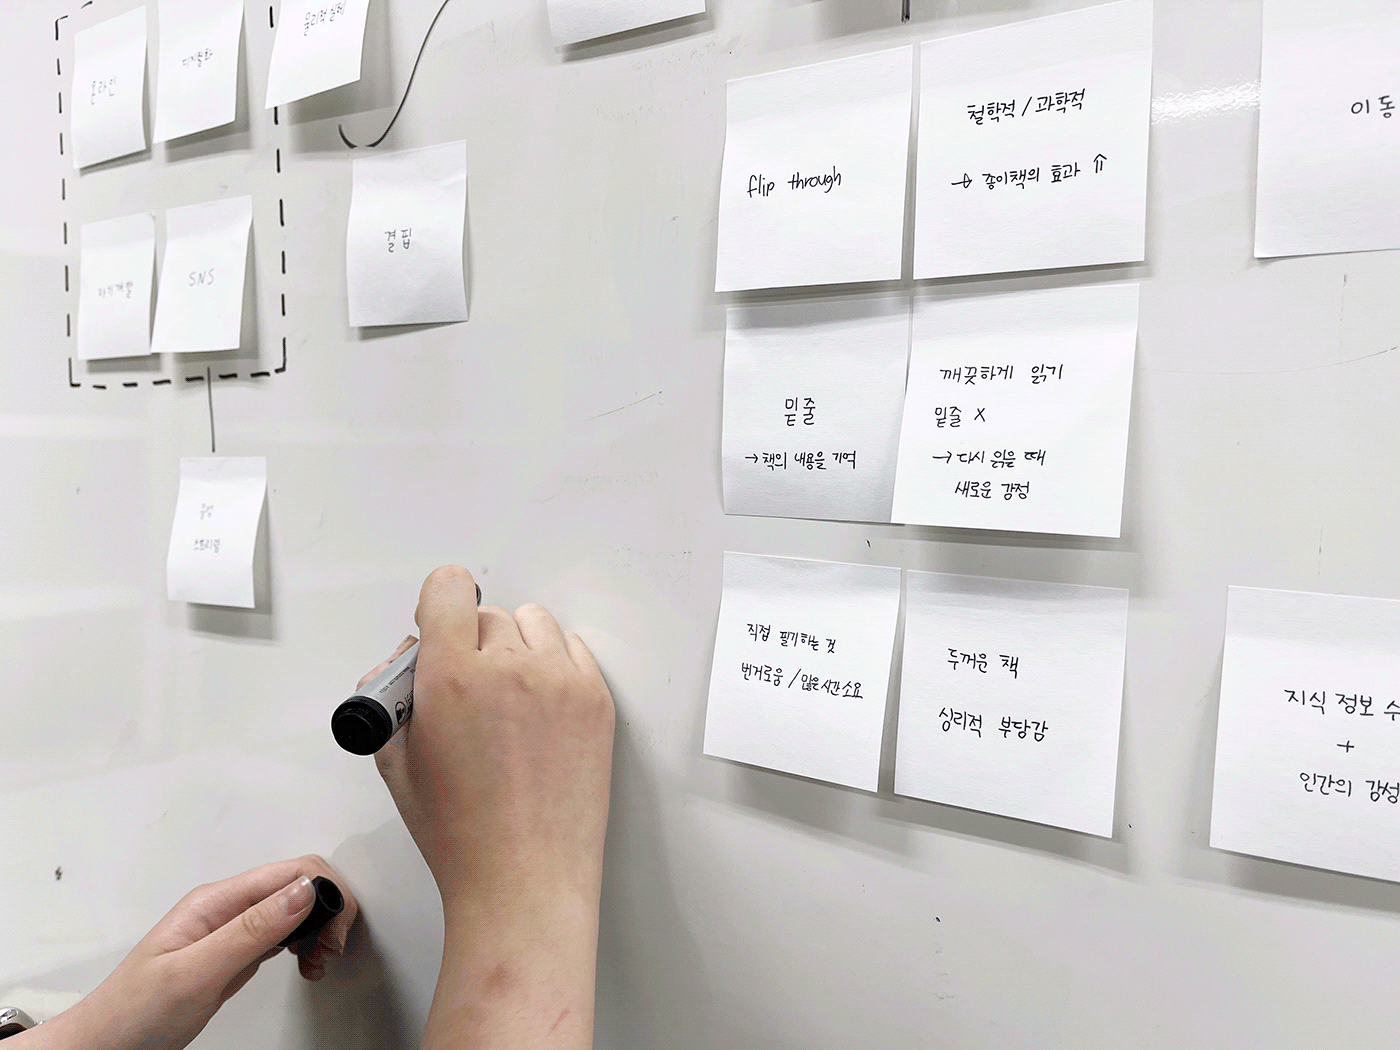 온라인
디지털화
물리적 실체
자기계발
SNS
결핍
음성
스트리밍
flip through
철학적 / 과학적
→ 종이책의 효과 ⇑
밑줄
→ 책의 내용을 기억
깨끗하게 읽기
밑줄 X
→ 다시 읽을 때
새로운 감정
직접 필기하는 것
번거로움 / 많은 시간 소요
두꺼운 책
심리적 부담감
이동
지식 정보 수
+
인간의 감성